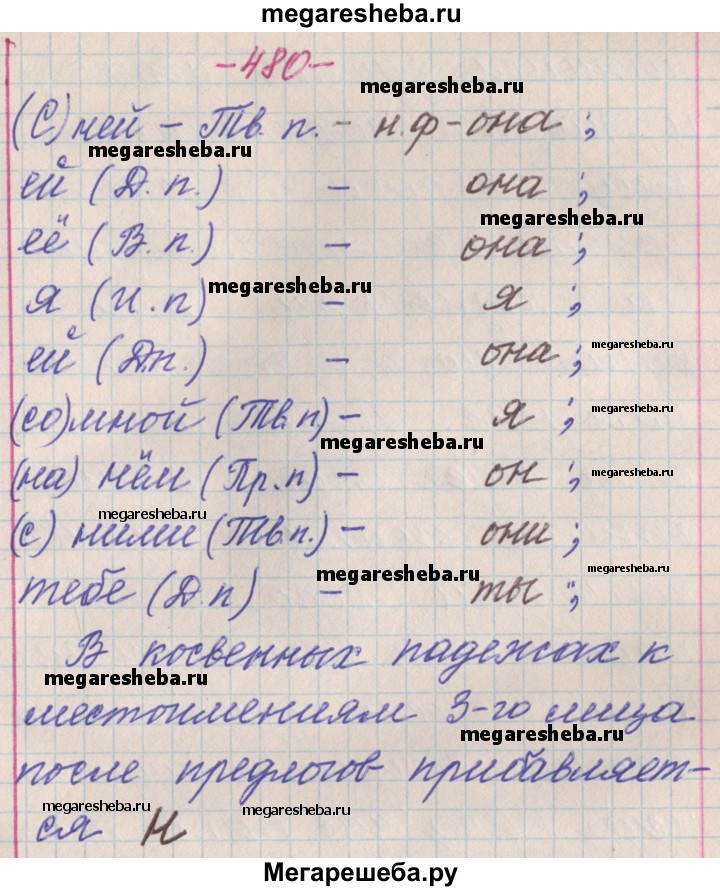 megaresheba.ru
-480-
megaresheba.ru
(С) ней - Тв. п. - н.ф - она ;
megaresheba.ru
ей (Д. п.) - она ;
megaresheba.ru
её (В. п.) - она ;
megaresheba.ru
я (И. п) - я ;
ей (Д.п.) - она ;
megaresheba.ru
(со) мной (Тв.п) - я ;
megaresheba.ru
megaresheba.ru
(на) нём (Пр.п) - он ;
megaresheba.ru
megaresheba.ru
(с) ними (Тв.п.) - они ;
megaresheba.ru
megaresheba.ru
тебе (Д.п) - ты ;
В косвенных падежах к
megaresheba.ru
местоимениям 3-го лица
megaresheba.ru
после предлогов прибавляет-
megaresheba.ru
megaresheba.ru
ся Н
Мегарешеба.ру